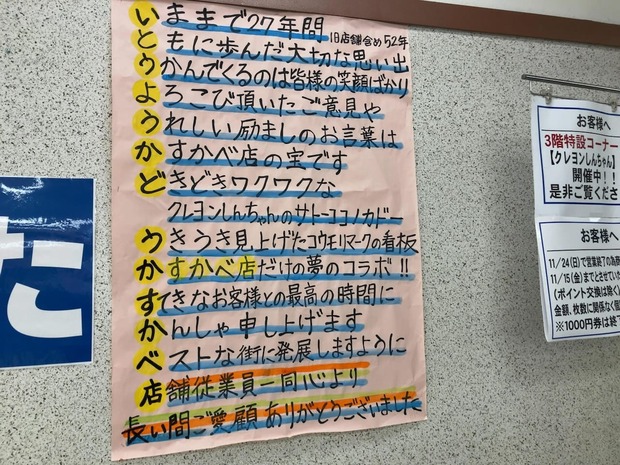 いままで27年間 旧店舗含め52年
ともに歩んだ大切な思い出
うかんでくるのは皆様の笑顔ばかり
よろこび頂いたご意見や
うれしい励ましのお言葉は
かすかべ店の宝です
どきどきワクワクな
クレヨンしんちゃんのサトーココノカドー
うきうき見上げたコウモリマークの看板
かすかべ店だけの夢のコラボ!!
すてきなお客様との最高の時間に
かんしゃ申し上げます
べストな街に発展しますように
店舗従業員一同心より
長い間ご愛顧ありがとうございました
た
お客様へ
3階特設コーナー
【クレヨンしんちゃん】
開催中!!
是非ご覧くださ
お客様へ
11/24(日)で営業終了の為
11/15(金)までとさせてい
(ポイント交換は除く
金額、枚数に関係なく
※1000円券は終